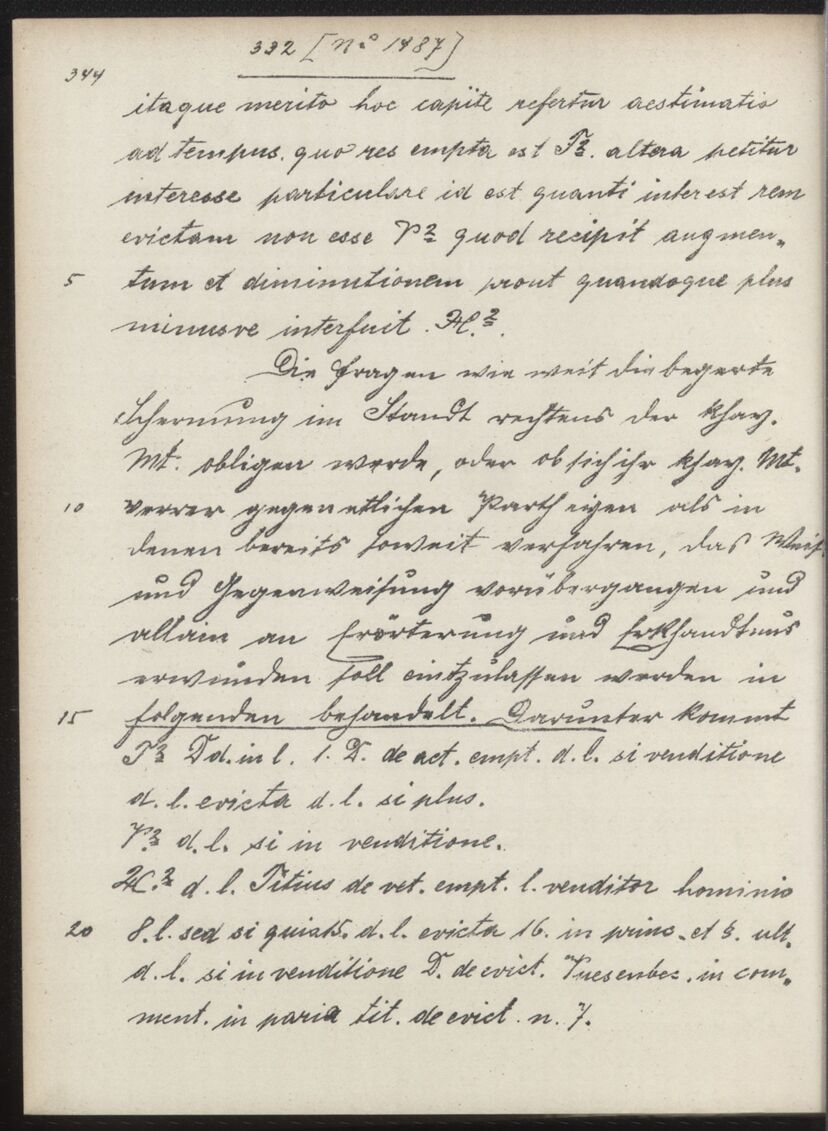 332 [No 1487]
344
itaque merito hoc capite refertur aestimatio
ad tempus. quo res empta est T2. altera petitur
interesse particulare id est quanti interest rem
evictam non esse V2 quod recipit augmen„
5 tum et diminutionem prout quandoque plus
minusve interfuit. X.2.
Die fragen wie weit die begerte
Schermung im Standt rechtens der Khay.
Mt. obligen werde, oder ob sich ihr Khay. Mt.
10 verrer gegen etlichen Partheyen als in
denen bereits soweit verfahren, das Weis
und Gegenweisung vorübergangen und
allain an Erörterung und Erkhandtnus
erwunden soll einzulassen werden in
15 folgenden behandelt. Darunter kommt
T2 Dd. in l. 1. D. de act. empt. d. l. si venditione
d. l. evicta d. l. si plus.
V2 d. l. si in venditione.
X.2 d. l. Titius de vet. empt. l. venditor hominis
20 8. l. sed si quis 15. d. l. evicta 16. in princ. et §. ult.
d. l. si in venditione D. de evict. in com„
ment. in paria tit. de evict. n. 7.